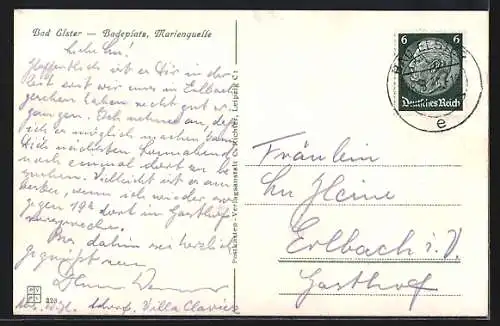 Bad Elster — Badeplatz, Marienquelle
Liebe
Hoffentlich ist es Dir in der
Zeit seit wir uns in Erlbach
gesehen haben recht gut er-
gangen. Ich nehme an, daß
ich es möglich machen kann
Dich nächsten Sonnabend
noch einmal dort zu be-
suchen. Vielleicht ist es am
besten, wenn ich wieder
gegen 19h dort im Gasthof
Bis dahin sei herzlich
gegrüßt von
Villa
328
Postkarten-Verlagsanstalt C. Richter, Leipzig C 1
6 6
Deutsches Reich
BAD ELSTER
e
Fräulein
Heine
Erlbach i. V.
Gasthof